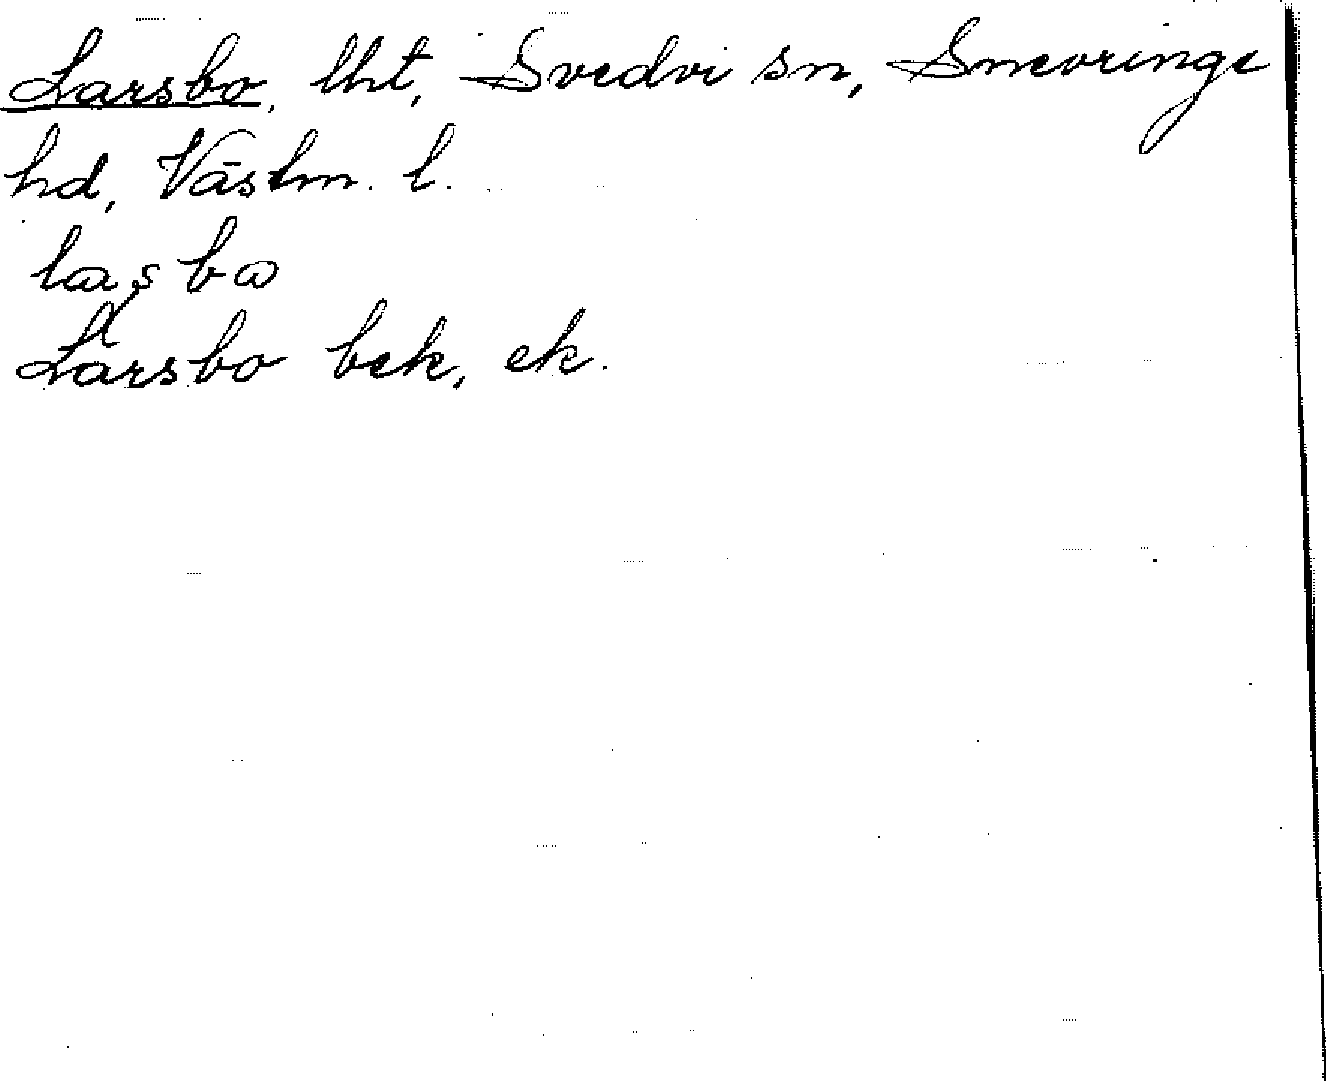 Larsbo, lht, Svedvi sn, Snevringe
hd, Västm. l.
lasbω
Larsbo bek, ek.